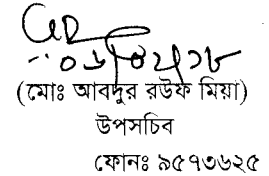 (মোঃ আবদুর রউফ মিয়া)
উপসচিব
ফোনঃ ৯৫৭৩৬২৫